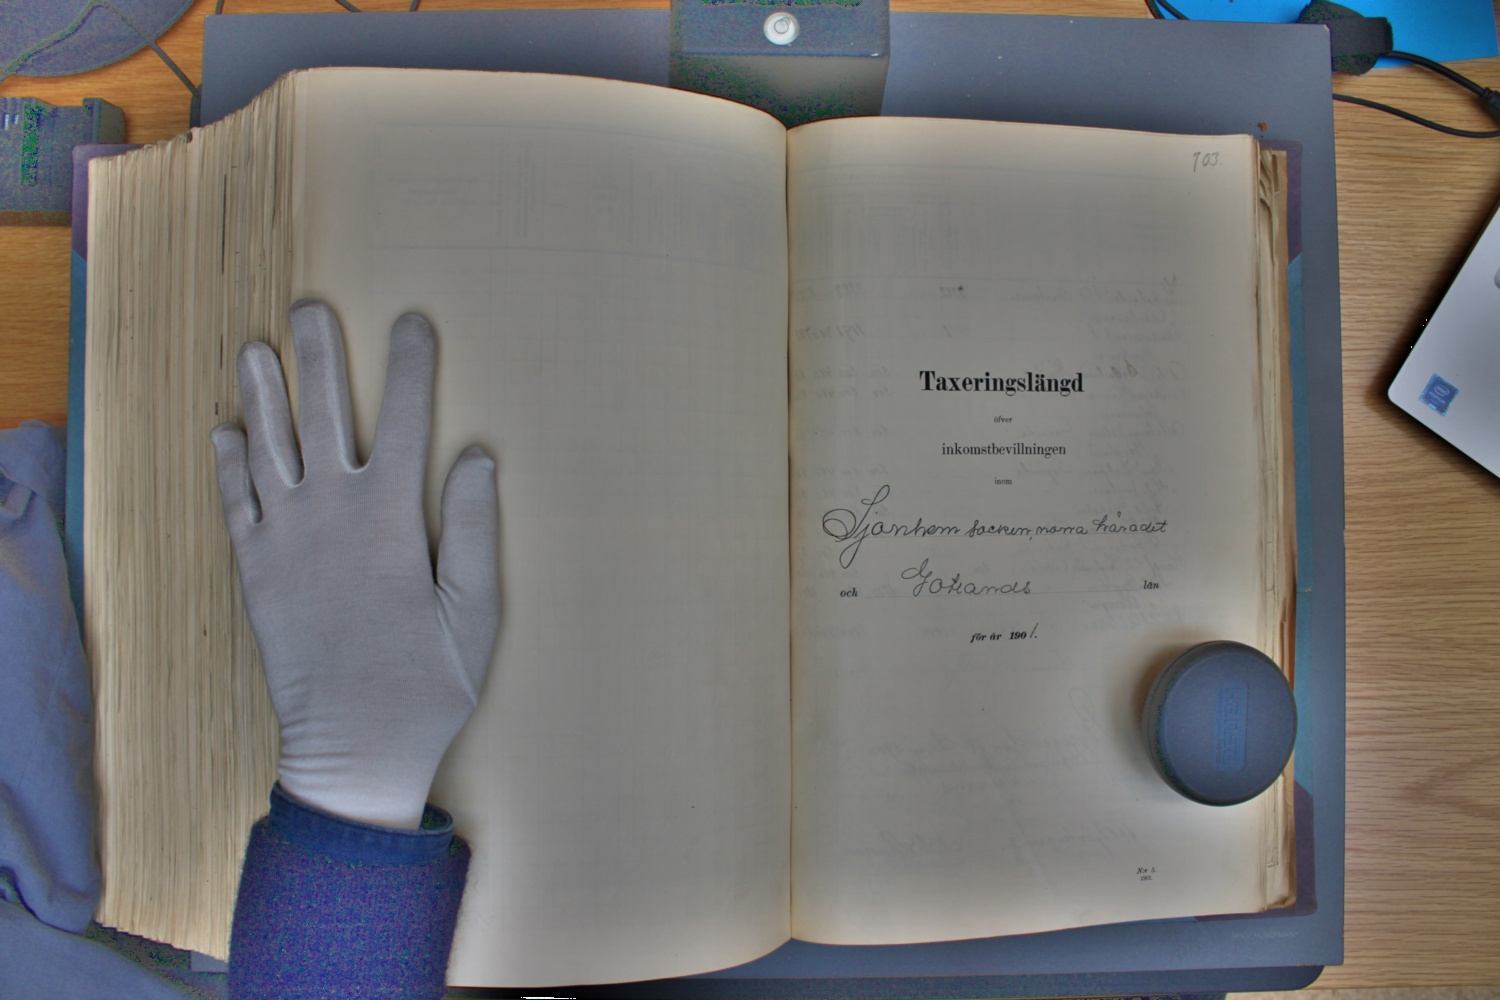 703.
Taxeringslängd
öfver
inkomstbevillningen
inom
Sjonhem socken, norra häradet
och Gotlands län
för år 1901.
N:r 5.